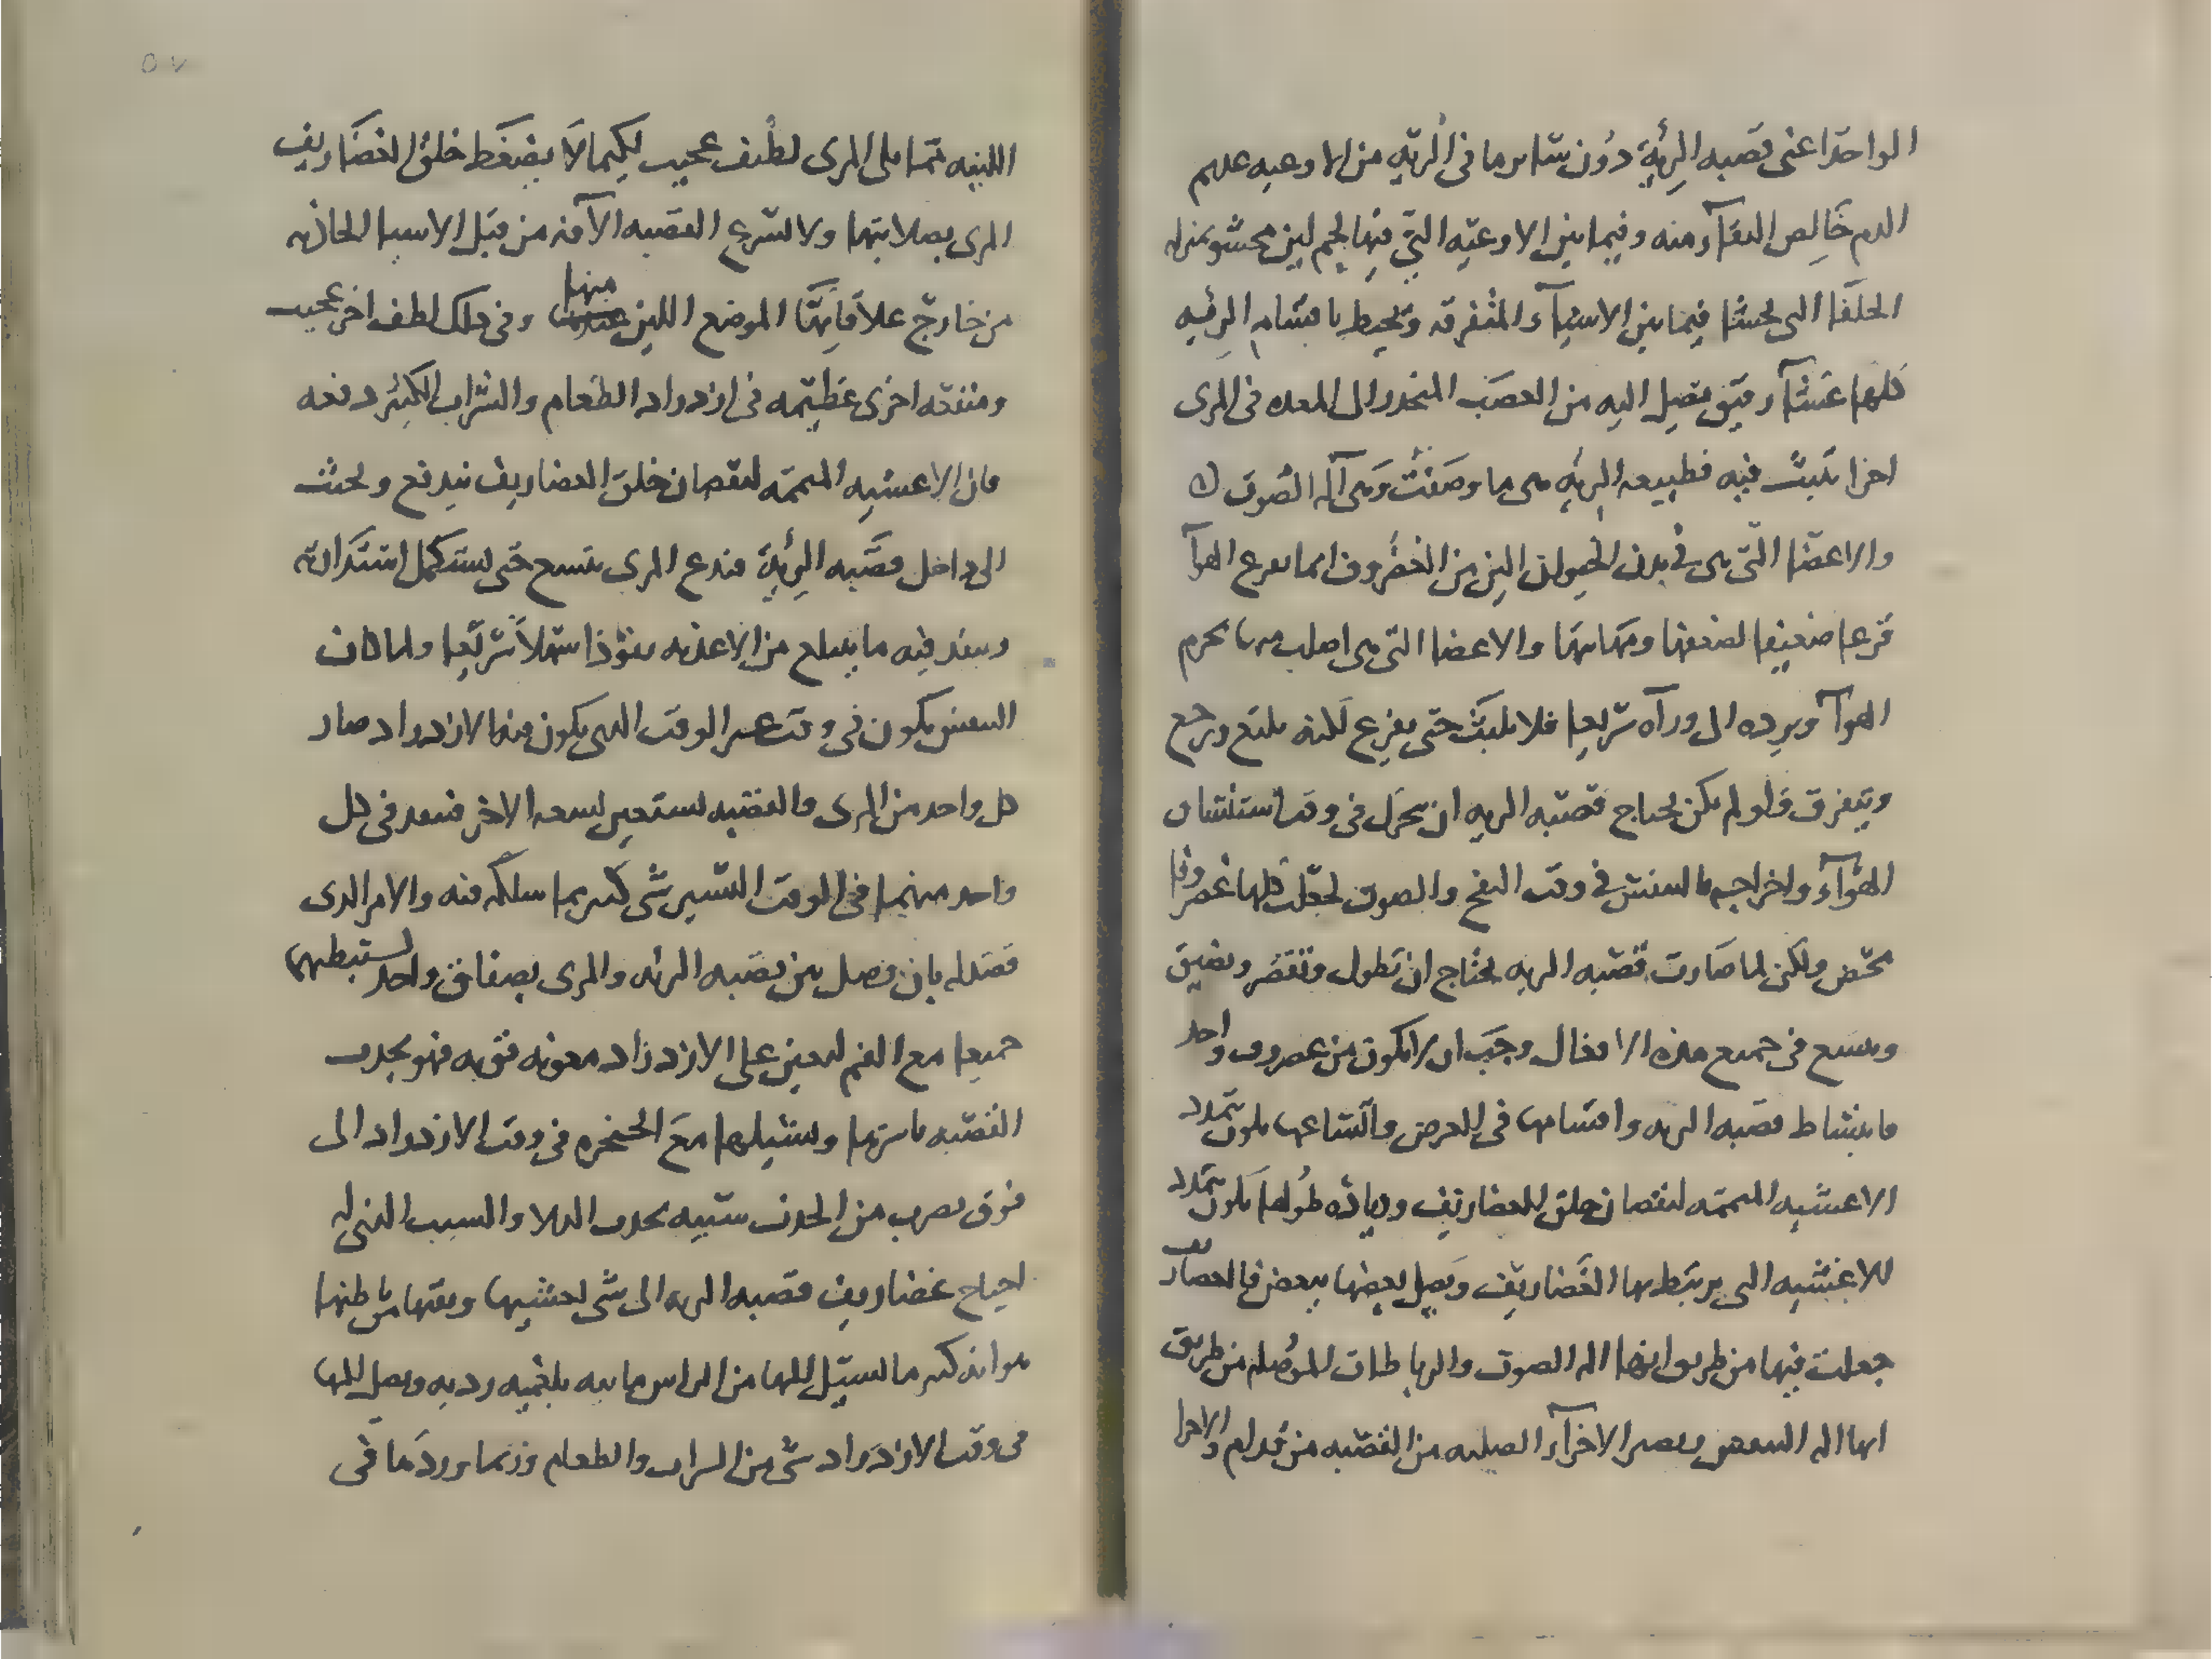 الواحد اعنى قصبه الرئة دون سائر ما فى الرئه من الاوعيه عديم
الدم خالص النقآء منه وفيما بين الاوعيه التى فيها لحم لين محشو بمنزله
الحلفا التى تحشا فيما بين الاشيآء المتفرقه وتحيط باقسام الرئيه
كلها غشآء رقيق تصل اليه من العصب المنحدر الى المعده فى المرى
اجزا تنبث فيه فطبيعه الرئه هى ما وصفت وهى آله الصوت
والاعضا التى هى فى بدن الحيوان الين من الغضروف انما تقرع الهوآ
قرعا ضعيفا لضعفها ومهانتها والاعضا التى هى اصلب منها تخرم
الهوآ وترده الى ورآه سريعا فلا يلبث حتى يقرع لكنه يندفع ويرجع
ويتفرق فلو لم يكن تحتاج قصبه الريه ان تحرك فى وقت استنشاق
الهوآء واخراجه بالتنفس فى وقت النفخ والصوت لجعلت كلها غضروفا
محض ولكن لما صارت قصبه الريه تحتاج ان تطول وتقصر وتضيق
وتتسع فى جميع هذه الافعال وجب ان لا تكون من غضروف واحد
فانبساط قصبه الريه واقسامها فى العرض واتساعها يكون بتمدد
الاغشيه المتممه لنقصان خلق الغضاريف وزياده طولها يكون بتمدد
للاغشيه التى يرتبط بها الغضاريف ويصل بعضها ببعض فالغضاريف
جعلت فيها من طريق انها اله الصوت والرباطات الموصله من طريق
انها اله التنفس وتصير الاجزآء الصلبه من القصبه من قدام والاجزا
اللينه مما يلى المرى لطيف عجيب لكيما لا يضغط خلق الغضاريف
المرى بصلابتها ولا تسرع القصبه الآفه من قبل الاسباب الحاذيه
من خارج علاقاتها الموضع اللين منها وفى ذلك لطف اخر عجيب
ومنفعه اخرى عظيمه فى ازدراد الطعام والشراب الكثير دفعه
فان الاغشيه المتممه لنقصان خلق الغضاريف تندفع وتحث
الى داخل قصبه الرئة فتدع المرى يتسع حتى يستكمل استدارته
وينفذ فيه ما يبلع من الاغذيه نفوذا سهلا سريعا ولما كان
التنفس يكون فى وقت غير الوقت الذى يكون فيه الازدراد صار
كل واحد من المرى والقصبه يستعين بسعه الاخر فينفذ فى كل
واحد منهما فى الوقت اليسير شى كثير مما سلكه فيه والامر الذى
قصد له بان وصل بين قصبه الرئه والمرى بصفاق واحد يستبطنهما
جميعا مع الفم ليعين على الازدراد معونه قويه فهو يجذب
القصبه باسرها ويشيلها مع الحنجره فى وقت الازدراد الى
فوق بضرب من الجذب شبيه بجذب الدلا والسبب الذى له
احتاج غضاريف قصبه الريه الى شى يغشيها ويقيها من باطنها
هو انه كثير ما يسيل اليها من الراس مائيه بلغميه رديه ويصل اليها
فى وقت الازدراد شى من الشراب والطعام وربما ورد ما فى